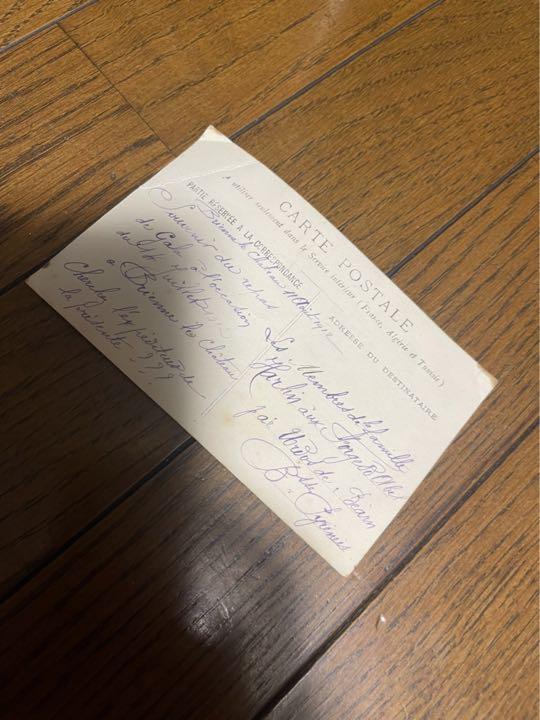 CARTE POSTALE
A utiliser seulement dans le Service intérieur (France, Algérie et Tunisie)
PARTIE RÉSERVÉE A LA CORRESPONDANCE
ADRESSE DU DESTINATAIRE
Brienne le Château
Souvenir du repas
de Gala à l'occasion
du 14 Juillet
à Brienne le Château
Cherchez l'expéditeur de
la présente ???
Les Membres de la famille
Harlin aux Forges d'Abel
par Urdos de Béarn
Bses Pyrénées